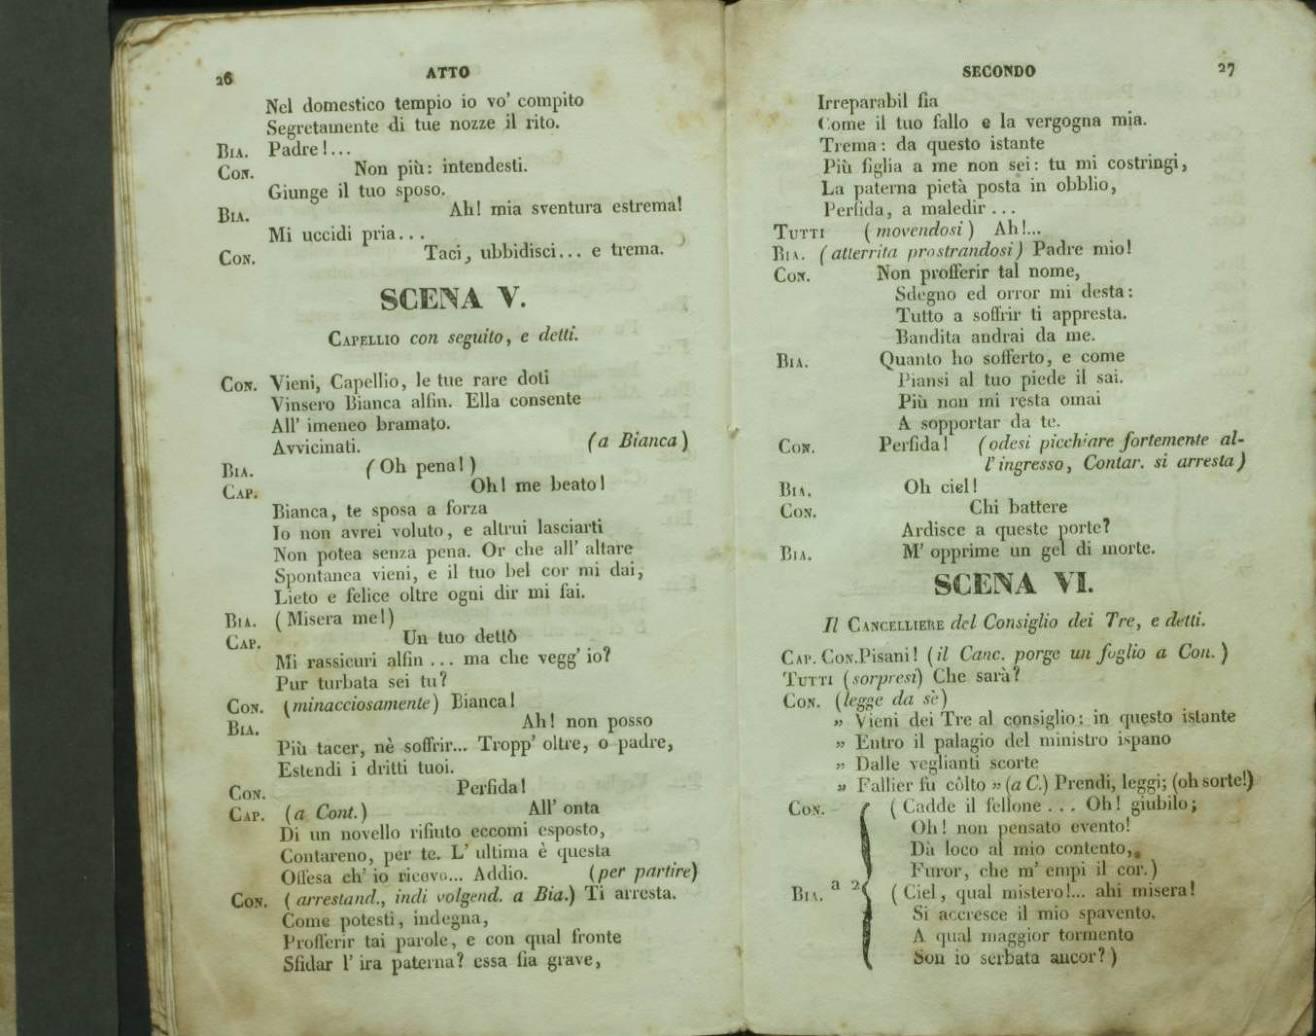 26 ATTO
Nel domestico tempio io vo' compito
Segretamente di tue nozze il rito.
BIA. Padre!...
CON. Non più: intendesti.
Giunge il tuo sposo.
BIA. Ah! mia sventura estrema!
Mi uccidi pria...
CON. Taci, ubbidisci... e trema.
SCENA V.
CAPELLIO con seguito, e detti.
CON. Vieni, Capellio, le tue rare doti
Vinsero Bianca alfin. Ella consente
All' imeneo bramato.
Avvicinati. (a Bianca)
BIA. (Oh pena!)
CAP. Oh! me beato!
Bianca, te sposa a forza
Io non avrei voluto, e altrui lasciarti
Non potea senza pena. Or che all' altare
Spontanea vieni, e il tuo bel cor mi dai,
Lieto e felice oltre ogni dir mi fai.
BIA. (Misera me!)
CAP. Un tuo detto
Mi rassicuri alfin... ma che vegg' io?
Pur turbata sei tu?
CON. (minacciosamente) Bianca!
BIA. Ah! non posso
Più tacer, nè soffrir... Tropp' oltre, o padre,
Estendi i dritti tuoi.
CON. Perfida!
CAP. (a Cont.) All' onta
Di un novello rifiuto eccomi esposto,
Contareno, per te. L' ultima è questa
Offesa ch' io ricevo... Addio. (per partire)
CON. (arrestand., indi volgend. a Bia.) Ti arresta.
Come potesti, indegna,
Profferir tai parole, e con qual fronte
Sfidar l' ira paterna? essa fia grave,
SECONDO 27
Irreparabil fia
Come il tuo fallo e la vergogna mia.
Trema: da questo istante
Più figlia a me non sei: tu mi costringi,
La paterna pietà posta in obblio,
Perfida, a maledir...
TUTTI (movendosi) Ah!...
BIA. (atterrita prostrandosi) Padre mio!
CON. Non profferir tal nome,
Sdegno ed orror mi desta:
Tutto a soffrir ti appresta.
Bandita andrai da me.
BIA. Quanto ho sofferto, e come
Piansi al tuo piede il sai.
Più non mi resta omai
A sopportar da te.
CON. Perfida! (odesi picchiare fortemente al-
l' ingresso, Contar. si arresta)
BIA. Oh ciel!
CON. Chi battere
Ardisce a queste porte?
BIA. M' opprime un gel di morte.
SCENA VI.
Il CANCELLIERE del Consiglio dei Tre, e detti.
CAP. CON. Pisani! (il Canc. porge un foglio a Con.)
TUTTI (sorpresi) Che sarà?
CON. (legge da sè)
» Vieni dei Tre al consiglio: in questo istante
» Entro il palagio del ministro ispano
» Dalle veglianti scorte
» Fallier fu còlto » (a C.) Prendi, leggi; (oh sorte!)
CON. (Cadde il fellone... Oh! giubilo;
Oh! non pensato evento!
Dà loco al mio contento,
Furor, che m' empi il cor.)
a 2
BIA. (Ciel, qual mistero!... ahi misera!
Si accresce il mio spavento.
A qual maggior tormento
Son io serbata ancor?)